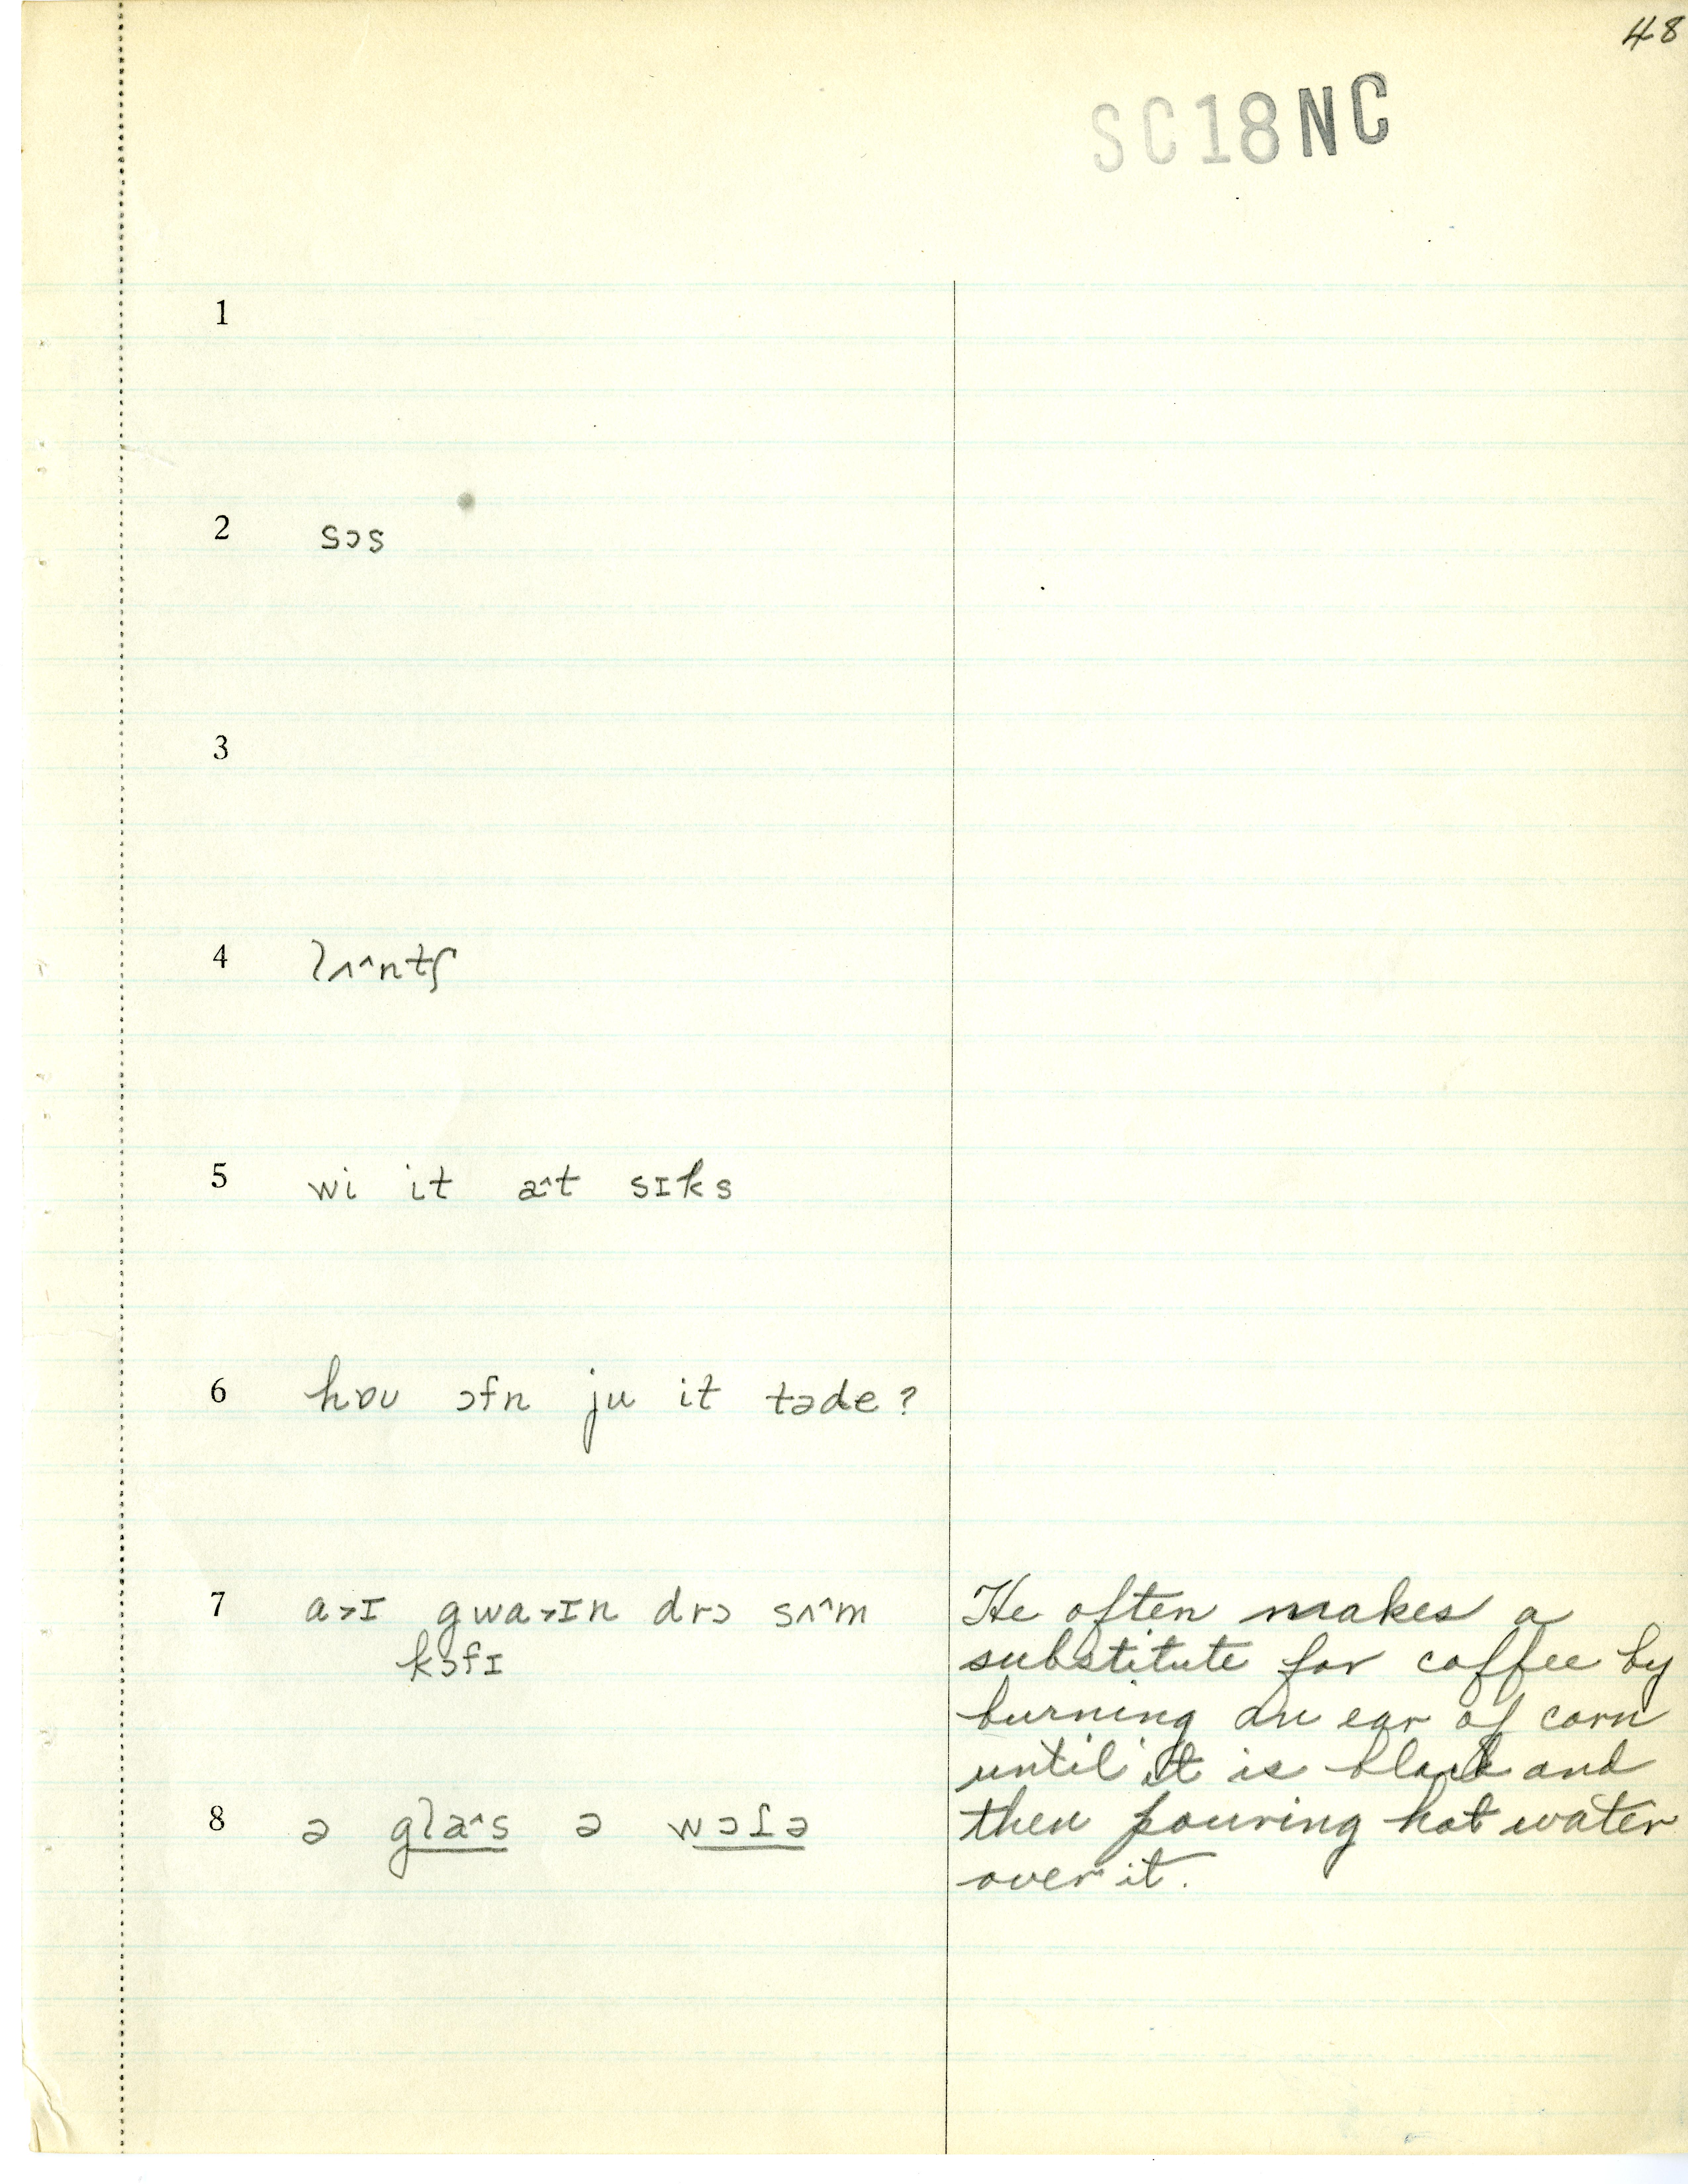 48
SC18NC
1
2 sɔs
3
4 lʌ^ntʃ
5 wi it a^t sɪks
6 hɒʊ ɔfn ju it tәde?
7 a˃ɪ gwa˃ɪn drɔ sʌ^m
kɔfɪ
He often makes a
substitute for coffee by
burning an ear of corn
until it is black and
8 ə gla^s ə wɔɾə
then pouring hot water
over it.